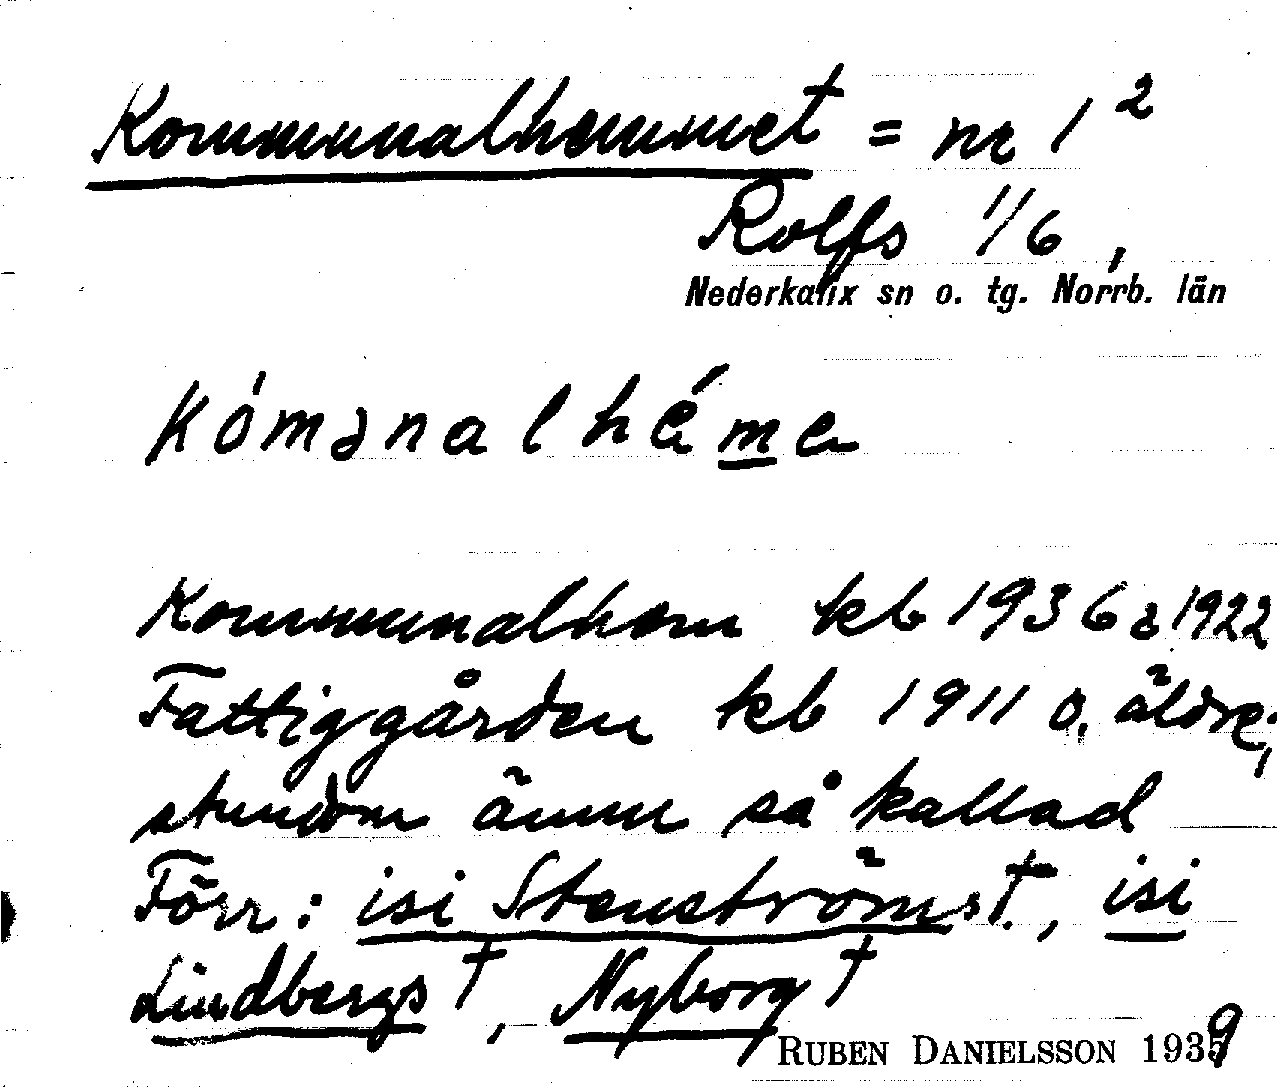 Kommunalhemmet = nr 1²
Rolfs 1/6,
Nederkalix sn o. tg. Norrb. län
kómənalhéme
Kommunalhem kb 1936 & 1922
Fattiggården kb 1911 o. äldre;
stundom ännu så kallad
Förr: isi Stenströms†, isi
Lindbergs†, Nyborg†
RUBEN DANIELSSON 1939